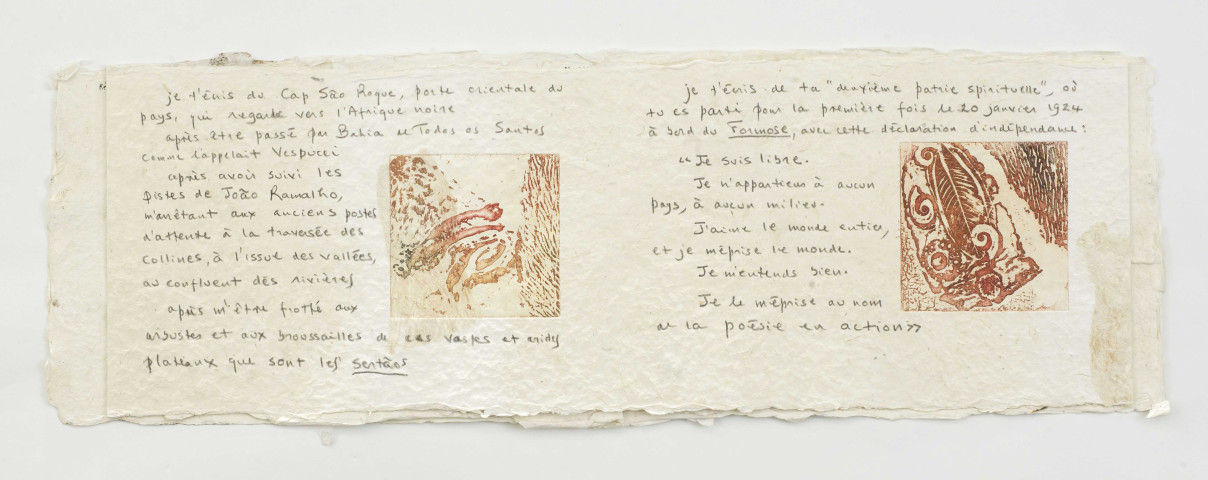 je t'écris du Cap São Roque, porte orientale du
pays, qui regarde vers l'Afrique noire
après être passé par Bahia de Todos os Santos
comme l'appelait Vespucci
après avoir suivi les
pistes de João Ramalho,
m'arrêtant aux anciens postes
d'attente à la traversée des
collines, à l'issue des vallées,
au confluent des rivières
après m'être frotté aux
arbustes et aux broussailles de ces vastes et arides
plateaux que sont les sertãos
je t'écris de ta "deuxième patrie spirituelle", où
tu es parti pour la première fois le 20 janvier 1924
à bord du Formose, avec cette déclaration d'indépendance :
"Je suis libre.
Je n'appartiens à aucun
pays, à aucun milieu.
J'aime le monde entier,
et je méprise le monde.
Je m'entends bien.
Je le méprise au nom
de la poésie en action»